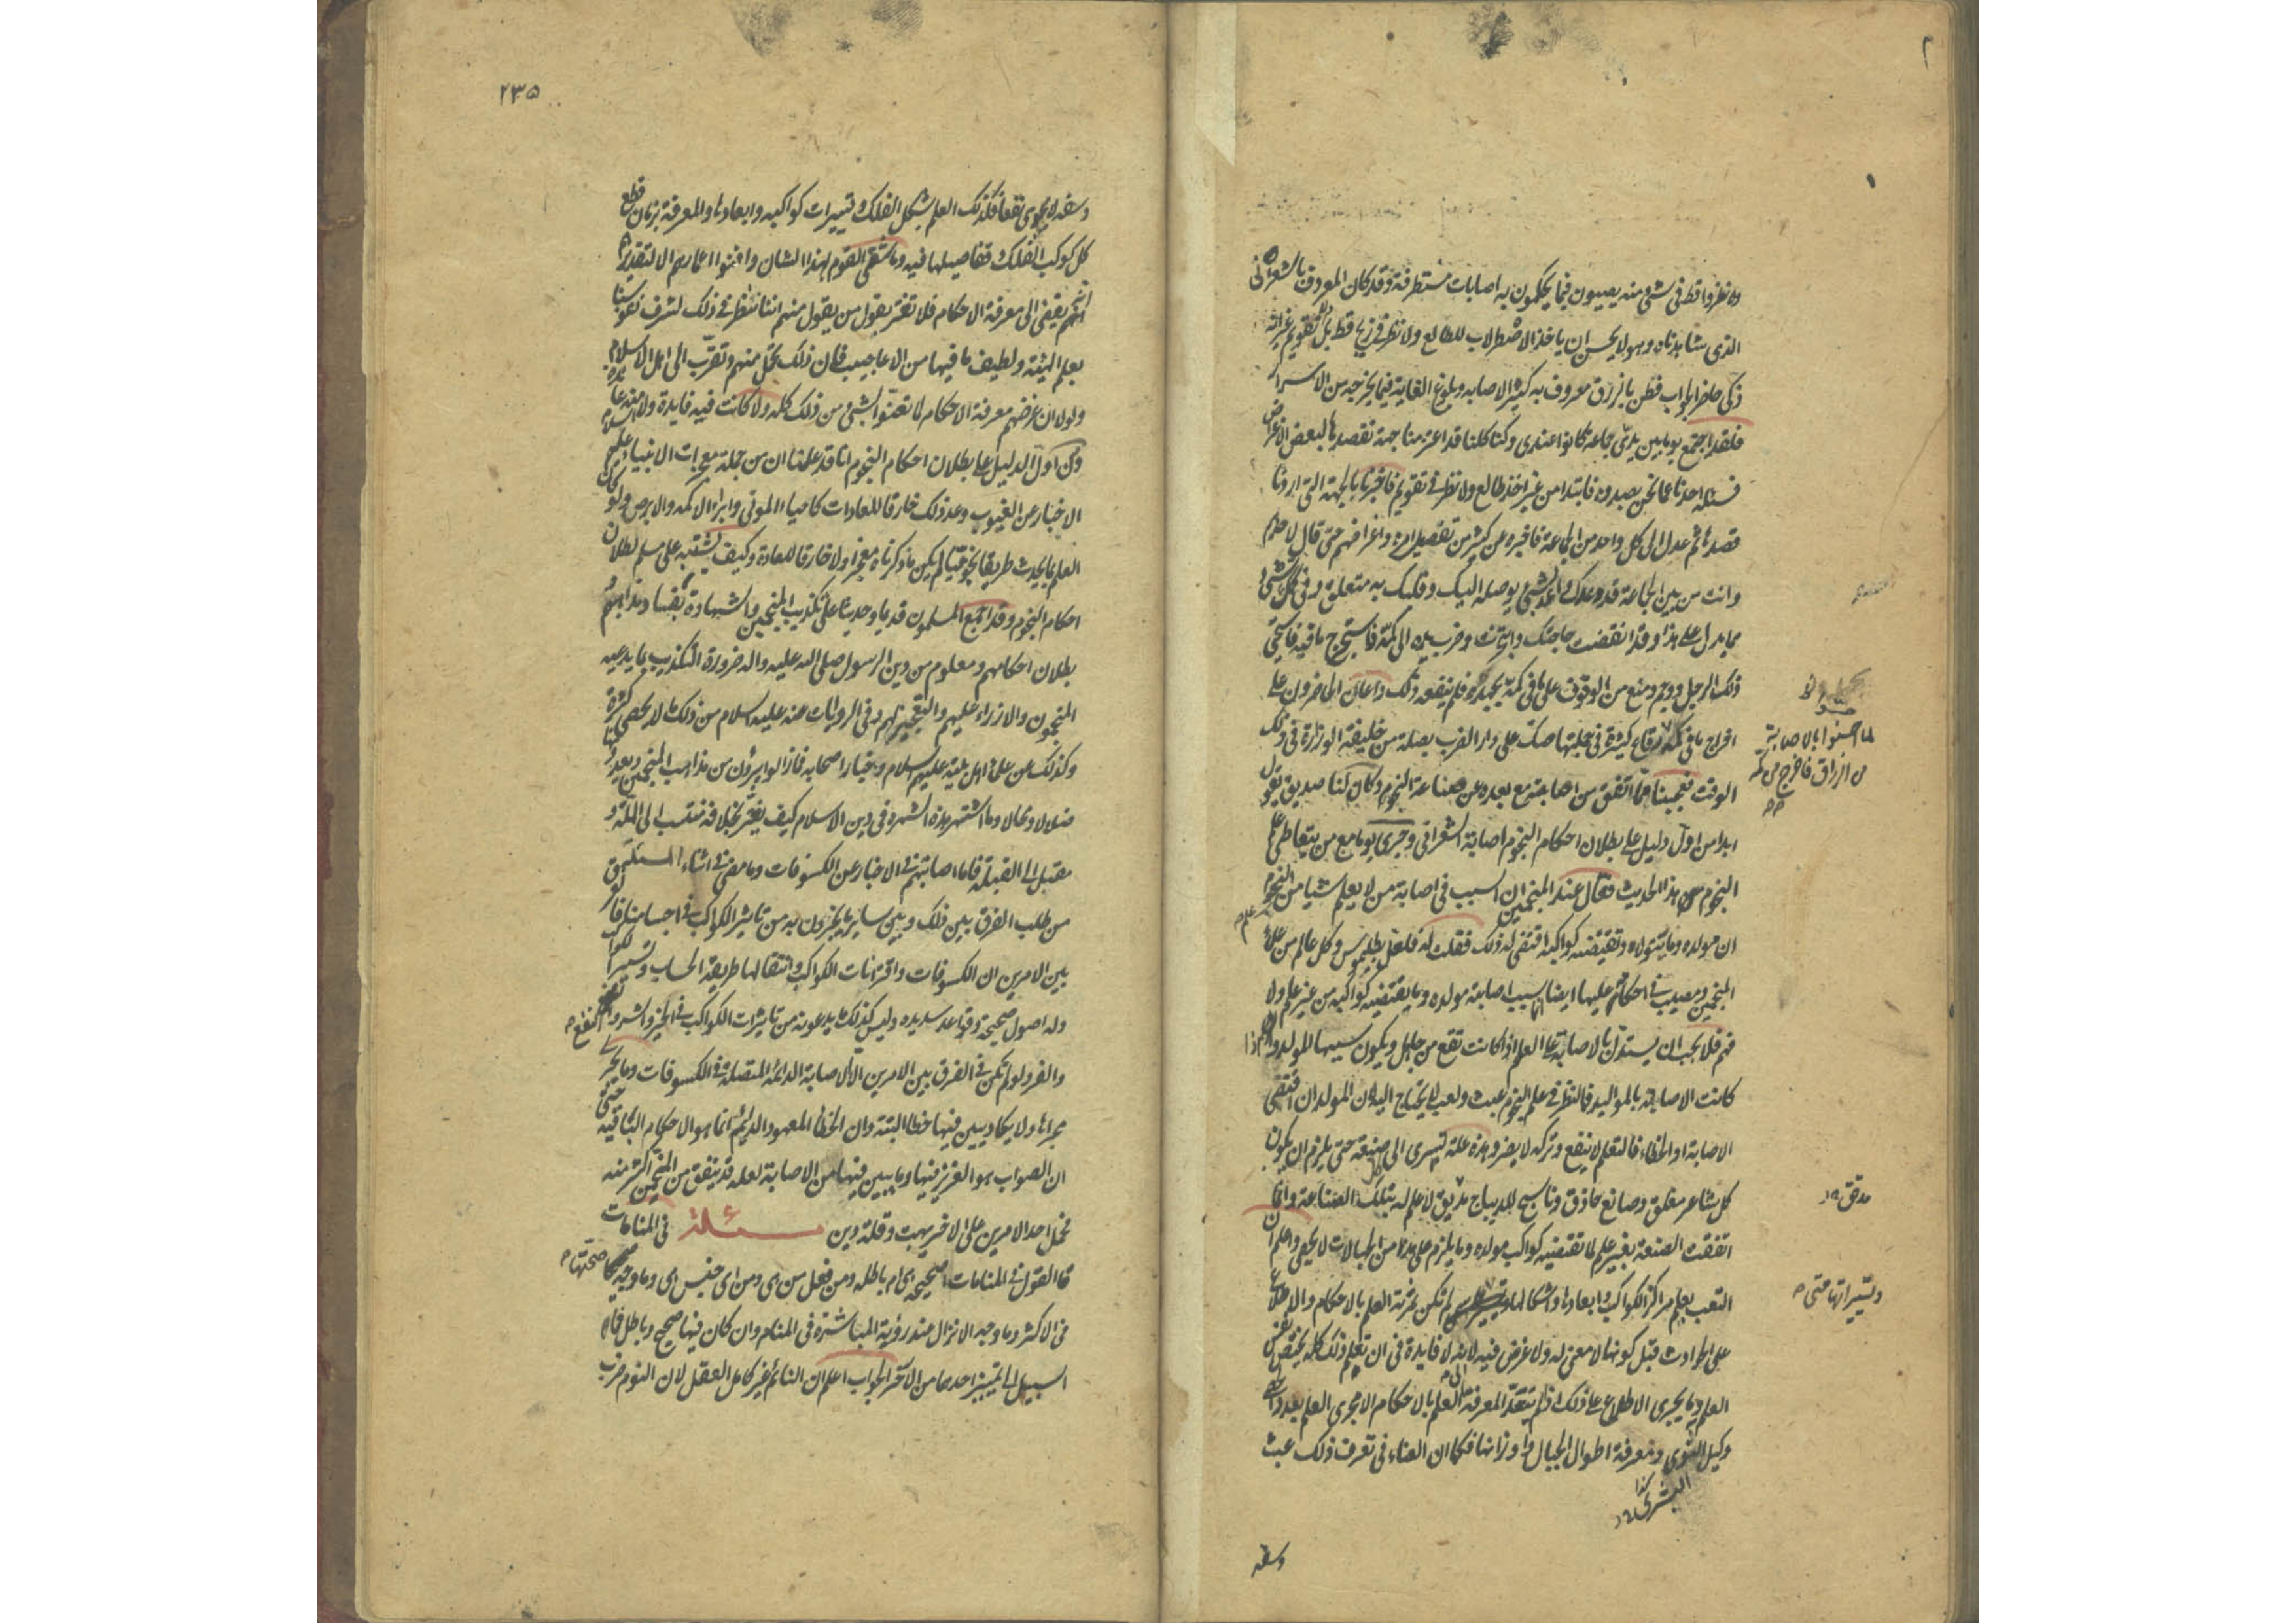 ولا نظروا قط في شئ منه يصيبون فيما يحكمون به اصابات مستطرفة وقد كان المعروف بالشعراني
الذي شاهدناه وهو لا يحسن ان ياخذ الاصطرلاب للطالع ولا نظر في زيج قط بل تقويم غير انه
ذكي حاضر الجواب فطن بالزرق معروف به كثير الاصابه وبلوغ الغاية فيما يخرجه من الاسرار
فلقد اجتمع يوما بين يدي جماعة كانوا عندي وكنا كلنا قد اعتزمنا جهة نقصدها لبعض الاغراض
فسئله احدنا عما نحن بصدده فابتدا من غير اخذ طالع ولا نظر في تقويم فاخبرنا بالجهة التي اردنا
قصدها ثم عدل الى كل واحد من الجماعة فاخبره عن كثير من تفصيل امره واغراضهم حتى قال لاحدهم
وانت من بين الجماعة قد وعدك واعد بشئ يوصله اليك وقلبك به متعلق وفي كمك شئ
مما يدل على هذا وقد انقضت حاجتك وانجزت وضرب يده الى كمه فاستخرج ما فيه فاستحيى
ذلك الرجل ووجم ومنع من الوقوف على ما في كمه بجهده فلم ينفعه ذلك واعان الحاضرون على
اخراج ما في كمه رقاع كثيرة في جملتها صك على دار الضرب بصلة من خليفة الوزارة في ذلك
لما احسوا بالاصابة
من الزراق فاخرج من كمه
الوقت فعجبنا مما اتفق من اصابته مع بعده عن صناعة النجوم وكان لنا صديق يقول
ابدا من اول دليل على بطلان احكام النجوم اصابة الشعراني وجرى يوما مع من يتعاطى علم
النجوم هذا الحديث فقال عند المنجمين ان السبب في اصابة من لا يعلم شيا من النجوم
ان مولده وما يتولاه وتقتضيه كواكبه اقتضى له ذلك فقلت له فلعل بطلميوس وكل عالم من علماء
المنجمين ومصيب في احكامه عليها ايضا انما سبب اصابته مولده وما يقتضيه كواكبه من غير علم ولا
فهم فلا يجب ان يستدل بالاصابة على العلم اذا كانت تقع من جاهل ويكون سببها المولد واذا
كانت الاصابة بالمواليد فالنظر في علم النجوم عبث ولعب لا يحتاج اليه لان المولد ان اقتضى
الاصابة او الخطاء فالتعلم لا ينفع وتركه لا يضر وهذه علة تسري الى كل صنعة حتى يلزم ان يكون
كل شاعر مفلق وصانع حاذق وناسج للديباج مديق لا علم له بتلك الصناعة وانما
مدقق
اتفقت الصنعة بغير علم لما تقتضيه كواكب مولده وما يلزم على هذا من الجهالات لا يحصى واعلم ان
التعب بعلم مراكز الكواكب وابعادها واشكالها لم تكن ثمرته العلم بالاحكام والاطلاع
وتسييراتها متى
على الحوادث قبل كونها لا معنى له ولا غرض فيه لانه لا فايدة في ان تعلم ذلك كله يختص نفس
العلم به وما يجري الاطلاع على ذلك اذا لم يتعد المعرفة الى العلم بالاحكام الا مجرى العلم بعدد الحصى
وكيل النوى ومعرفة اطوال الجبال واوزانها فكما ان العناء في تعرف ذلك عبث
وسفه
٢٣٥
وسفه لا يجدي نفعا فكذلك العلم بشكل الفلك وتسييرات كواكبه وابعادها والمعرفة بزمان قطع
كل كوكب الفلك وتفاصيلها فيه وما شقي القوم بهذا الشان وافنوا اعمارهم الا لتقديرهم
انهم يفضي الى معرفة الاحكام فلا تغتر بقول من يقول منهم اننا ننظر في ذلك لشرف نفوسنا
بعلم الهيئة ولطيف ما فيها من الاعاجيب فان ذلك تجمل منهم وتقرب الى اهل الاسلام
ولولا ان غرضهم معرفة الاحكام لا تعنوا بشئ من ذلك كله ولا كانت فيه فايدة ولا منه عائدة
ومن اول الدليل على بطلان احكام النجوم انا قد علمنا ان من جملة معجزات الانبياء عليهم السلام
الاخبار عن الغيوب وعد ذلك خارقا للعادات كاحياء الموتى وابراء الاكمه والابرص ولو كان
العلم بما يحدث طريقا نجوميا لم يكن ما ذكرناه معجزا ولا خارقا للعادة وكيف يشتبه على مسلم بطلان
احكام النجوم وقد اجمع المسلمون قديما وحديثا على تكذيب المنجمين والشهادة بفساد مذاهبهم و
بطلان احكامهم ومعلوم من دين الرسول صلى الله عليه واله ضرورة التكذيب بما يدعيه
المنجمون والازراء عليهم والتعجيز لهم وفي الروايات عنه عليه السلام من ذلك ما لا يحصى كثرة
وكذلك عن علماء اهل بيته عليهم السلام وخيار اصحابه فما زالوا يبرؤن من مذاهب المنجمين ويعدونها
ضلالا ومحالا وما اشتهر هذه الشهرة في دين الاسلام كيف يغتر بخلافه منتسب الى الملة و
مقبل الى القبلة فاما اصابتهم في الاخبار عن الكسوفات وما مضى في اثناء المسئلة
من طلب الفرق بين ذلك وبين ساير ما يخبرون به من تاثير الكواكب في اجسامنا فالفرق
بين الامرين ان الكسوفات واقترانات الكواكب وانتقالها طريقة الحساب وتسيير الكواكب
وله اصول صحيحة وقواعد سديده وليس كذلك ما يدعونه من تاثيرات الكواكب في الخير والشر والنفع
والضر ولو لم يكن في الفرق بين الامرين الا الاصابة الدائمة المتصلة في الكسوفات وما يجري
مجراها ولا يكاد يبين فيها خطا البتة وان الخطا المعهود الدائم انما هو الاحكام الباقية حتى
ان الصواب هو العزيز فيها وما يبين فيها من الاصابة لعله قد يتفق من المخمن اكثر منه
فحمل احد الامرين على الاخر بهت وقلة دين مسئلة في المنامات
ما القول في المنامات اصحيحه هي ام باطله ومن فعل من هي ومن اي جنس هي وما وجه صحتها
في الاكثر وما وجه الانزال عند رؤية المباشرة في المنام وان كان فيها صحيح وباطل فما
السبيل الى تمييز احدهما من الاخر الجواب اعلم ان النائم غير كامل العقل لان النوم ضرب